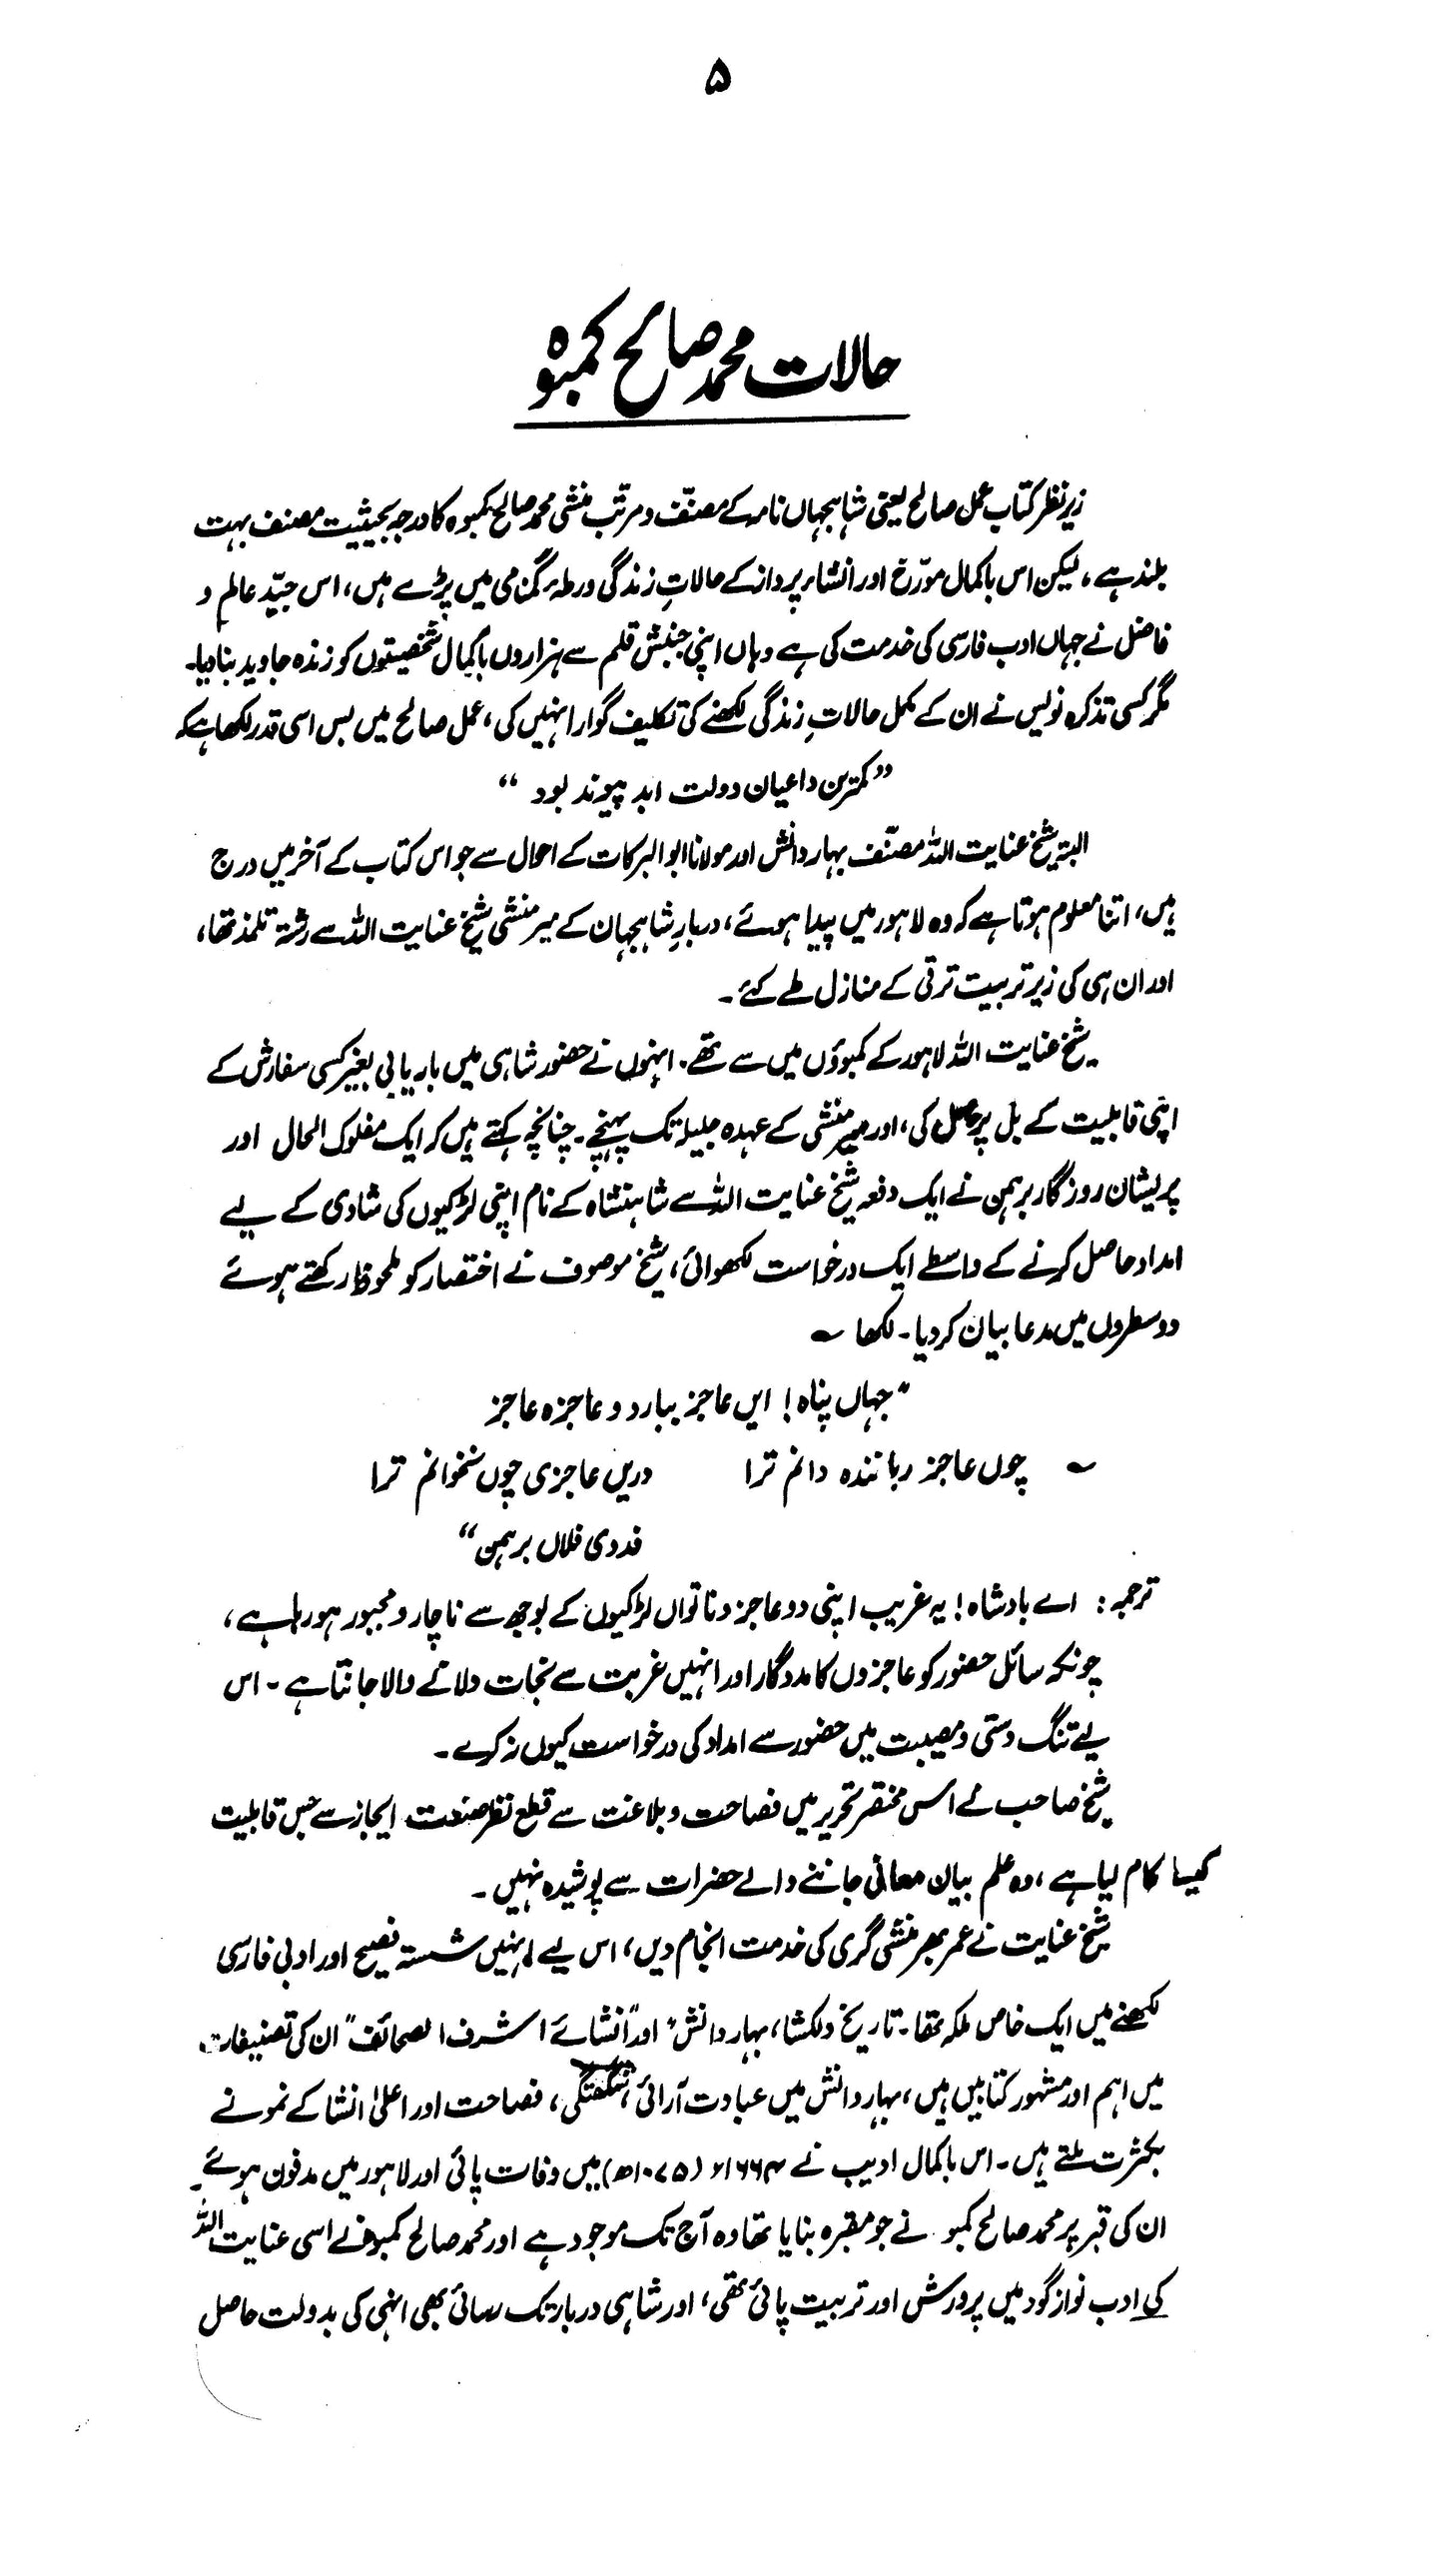 ۵
حالات محمد صالح کمبوہ
زیر نظر کتاب عمل صالح یعنی شاہجہاں نامہ کے مصنّف و مرتّب منشی محمد صالح کمبوہ کا درجہ بحیثیت مصنف بہت
بلند ہے، لیکن اس باکمال مورّخ اور انشاء پرداز کے حالاتِ زندگی ورطۂ گمنامی میں پڑے ہیں، اس جیّد عالم و
فاضل نے جہاں ادب فارسی کی خدمت کی ہے وہاں اپنی جنبش قلم سے ہزاروں باکمال شخصیتوں کو زندہ جاوید بنا دیا۔
مگر کسی تذکرہ نویس نے ان کے مکمل حالاتِ زندگی لکھنے کی تکلیف گوارا نہیں کی، عمل صالح میں بس اسی قدر لکھا ہے کہ
”کمترین داعیان دولت ابد پیوند بود“
البتہ شیخ عنایت اللہ مصنّف بہار دانش اور مولانا ابو البرکات کے احوال سے جو اس کتاب کے آخر میں درج
ہیں، اتنا معلوم ہوتا ہے کہ وہ لاہور میں پیدا ہوئے، دربارِ شاہجہان کے میر منشی شیخ عنایت اللہ سے رشتۂ تلمذ تھا،
اور ان ہی کی زیر تربیت ترقی کے منازل طے کئے۔
شیخ عنایت اللہ لاہور کے کمبوؤں میں سے تھے۔ انہوں نے حضور شاہی میں باریابی بغیر کسی سفارش کے
اپنی قابلیت کے بل پر حاصل کی، اور میر منشی کے عہدہ جلیلہ تک پہنچے۔ چنانچہ کہتے ہیں کہ ایک مفلوک الحال اور
پریشان روزگار برہمن نے ایک دفعہ شیخ عنایت اللہ سے شاہنشاہ کے نام اپنی لڑکیوں کی شادی کے لیے
امداد حاصل کرنے کے واسطے ایک درخواست لکھوائی، شیخ موصوف نے اختصار کو ملحوظ رکھتے ہوئے
دو سطروں میں مدعا بیان کر دیا۔ لکھا ؎
”جہاں پناہ! ایں عاجز ببار دو عاجزہ عاجز
؎ چوں عاجز رہانندہ دانم ترا دریں عاجزی چوں نخوانم ترا
فدوی فلاں برہمن“
ترجمہ: اے بادشاہ! یہ غریب اپنی دو عاجز و ناتواں لڑکیوں کے بوجھ سے ناچار و مجبور ہو رہا ہے،
چونکہ سائل حضور کو عاجزوں کا مددگار اور انہیں غربت سے نجات دلانے والا جانتا ہے۔ اس
لیے تنگ دستی و مصیبت میں حضور سے امداد کی درخواست کیوں نہ کرے۔
شیخ صاحب نے اس مختصر تحریر میں فصاحت و بلاغت سے قطع نظر صنعت ایجاز سے جس قابلیت
کیسا کام لیا ہے، وہ علم بیان معانی جاننے والے حضرات سے پوشیدہ نہیں۔
شیخ عنایت نے عمر بھر منشی گری کی خدمت انجام دیں، اس لیے انہیں شستہ فصیح اور ادبی فارسی
لکھنے میں ایک خاص ملکہ تھا۔ تاریخ دلکشا، بہار دانش“ اور ”انشائے اشرف الصحائف“ ان کی تصنیفات
میں اہم اور مشہور کتابیں ہیں، بہار دانش میں عبادت آرائی، شگفتگی، فصاحت اور اعلیٰ انشا کے نمونے
بکثرت ملتے ہیں۔ اس باکمال ادیب نے ۱۶۶۴ء (۱۰۷۵ھ) میں وفات پائی اور لاہور میں مدفون ہوئے۔
ان کی قبر پر محمد صالح کمبو نے جو مقبرہ بنایا تھا وہ آج تک موجود ہے اور محمد صالح کمبوہ نے اسی عنایت اللہ
کی ادب نواز گود میں پرورش اور تربیت پائی تھی، اور شاہی دربار تک رسائی بھی انہی کی بدولت حاصل